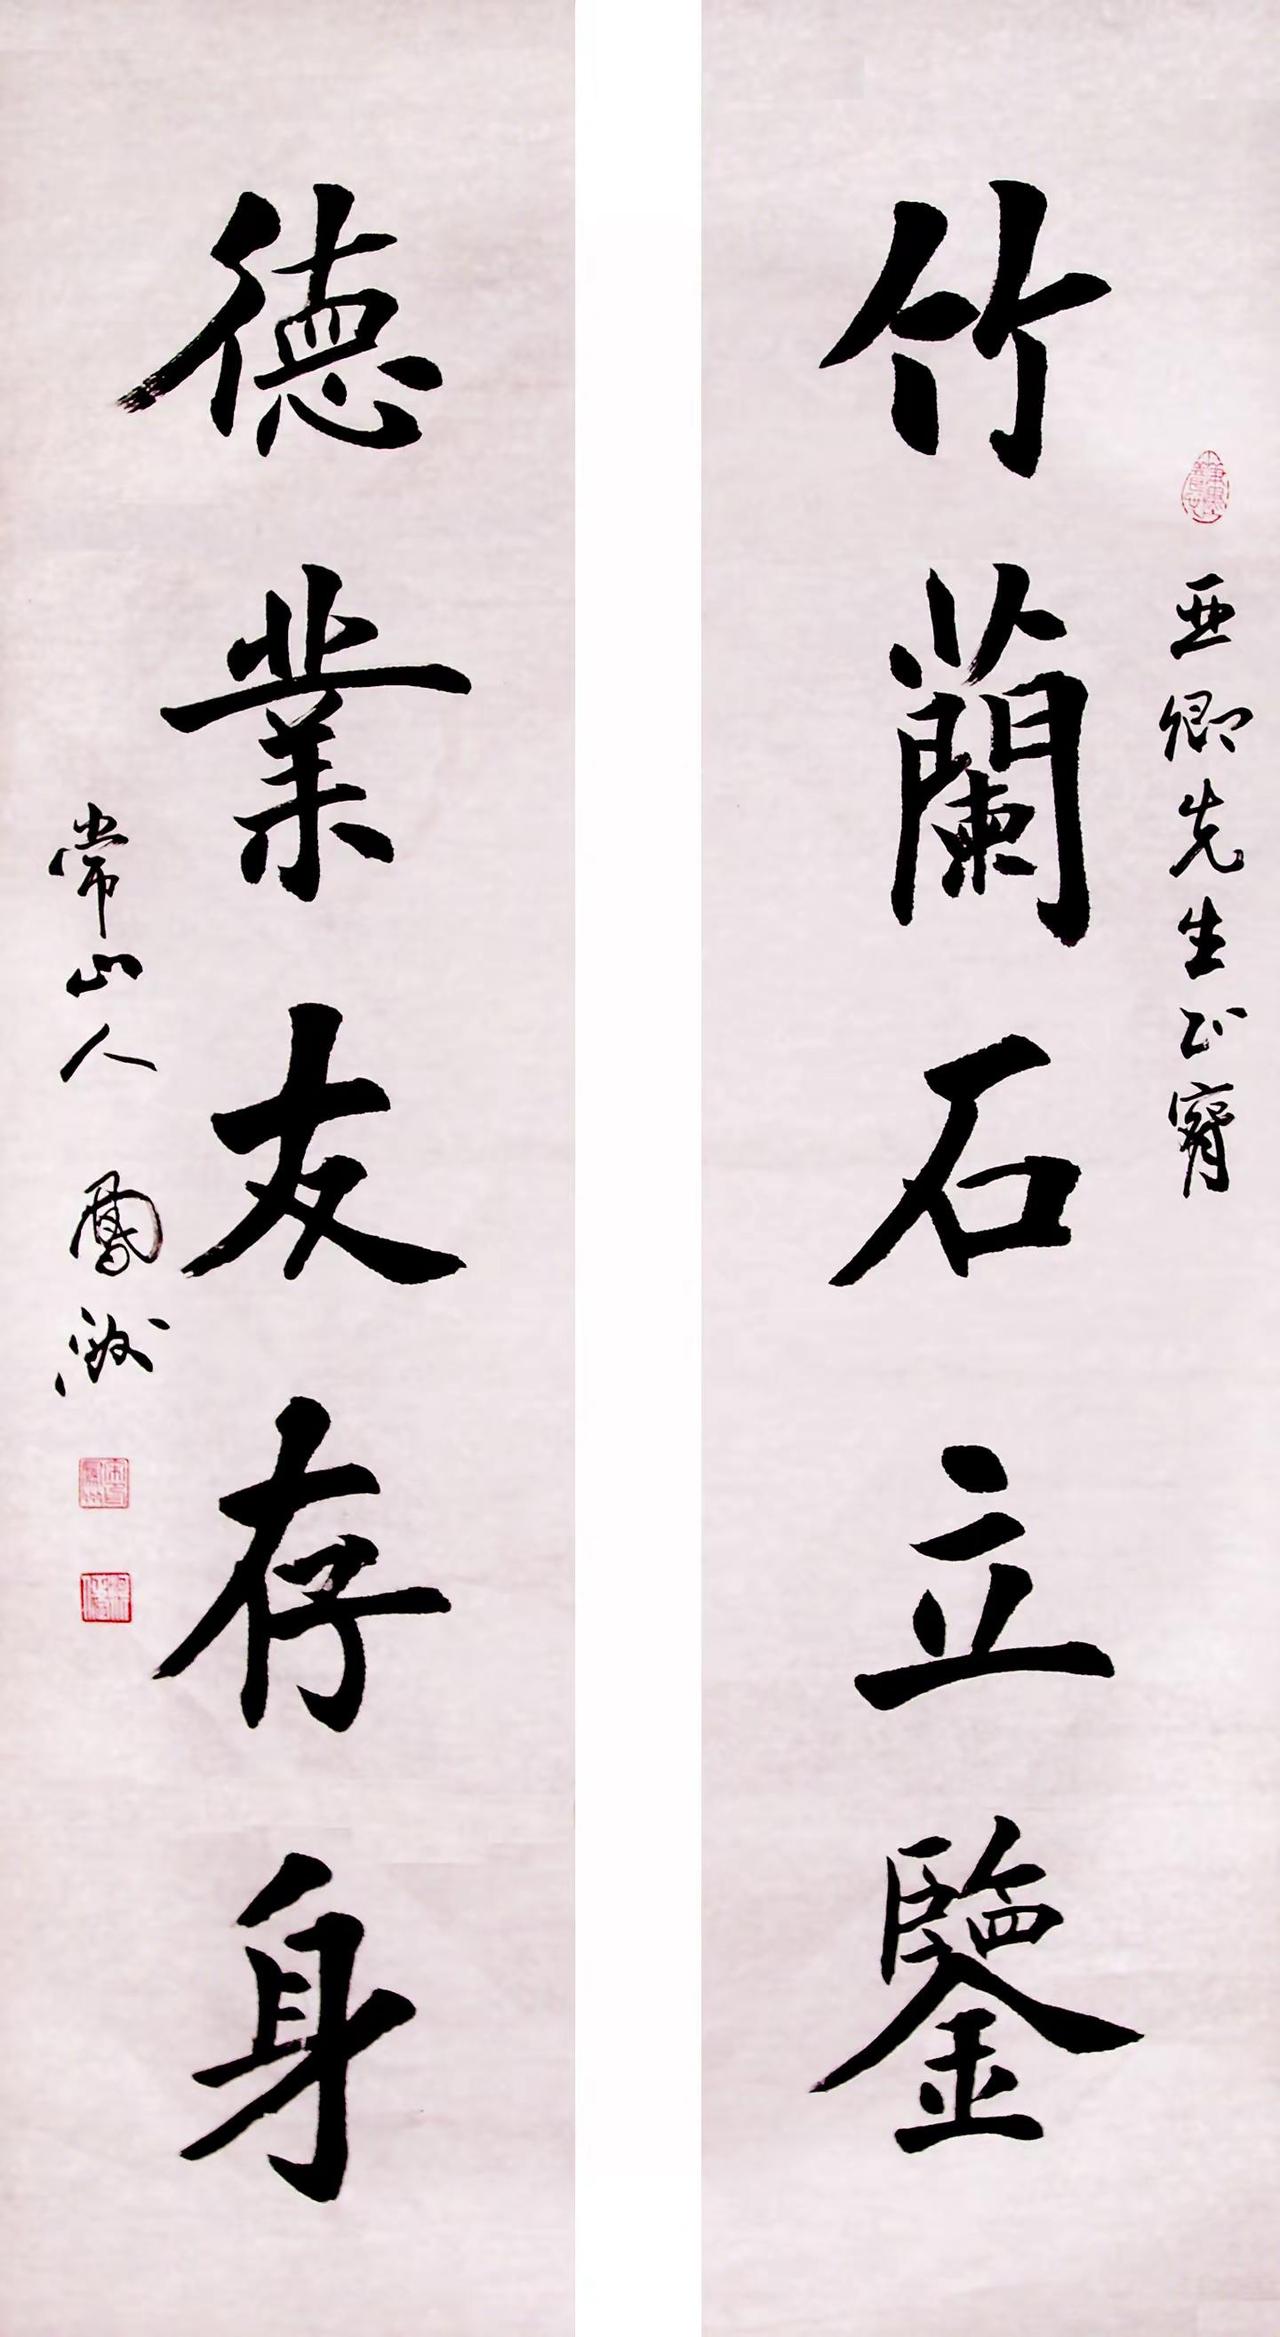 竹蘭石立鑒
亞卿先生正腕
德業友存身
常山人 鳳洲